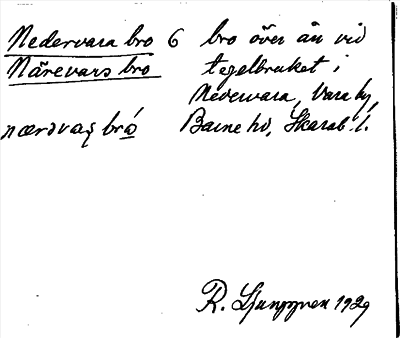 Nedervara bro 6 bro över ån vid
Närevars bro tegelbruket i
Nedervara, Vara by,
nærəvaş bró Barne hd, Skarab. l.
R. Ljunggren 1929